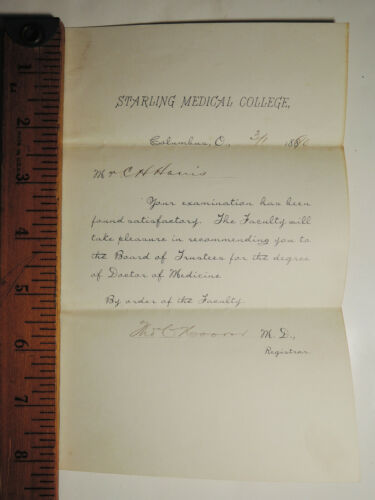 STARLING MEDICAL COLLEGE,
Columbus, O., 3/1 18
Mr C H Harris
Your examination has been
found satisfactory. The Faculty will
take pleasure in recommending you to
the Board of Trustees for the degree
of Doctor of Medicine
By order of the Faculty.
Thos C Hoover M. D.,
Registrar.
1
2
3
4
5
6
7
8